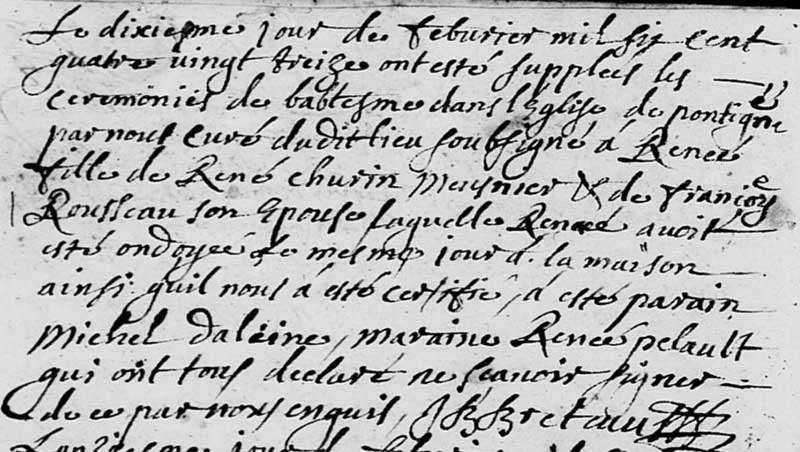 Le dixiesme jour de feburier mil six cent
quatre vingt treize ont esté supplees les
ceremonies de babtesme dans l'Eglise de pontigné
par nous curé dudit lieu soubsigné à Renée
fille de René churin Meusnier & de françoise
Rousseau son Epouse laquelle Renée avoit
esté ondoyée le mesme jour à la maison
ainsi quil nous à esté certifié, à esté parain
Michel daleine, maraine Renée pelault
qui ont tous declaré ne scavoir signer
de ce par nous enquis, J B Bretault
L'onziesme jour de